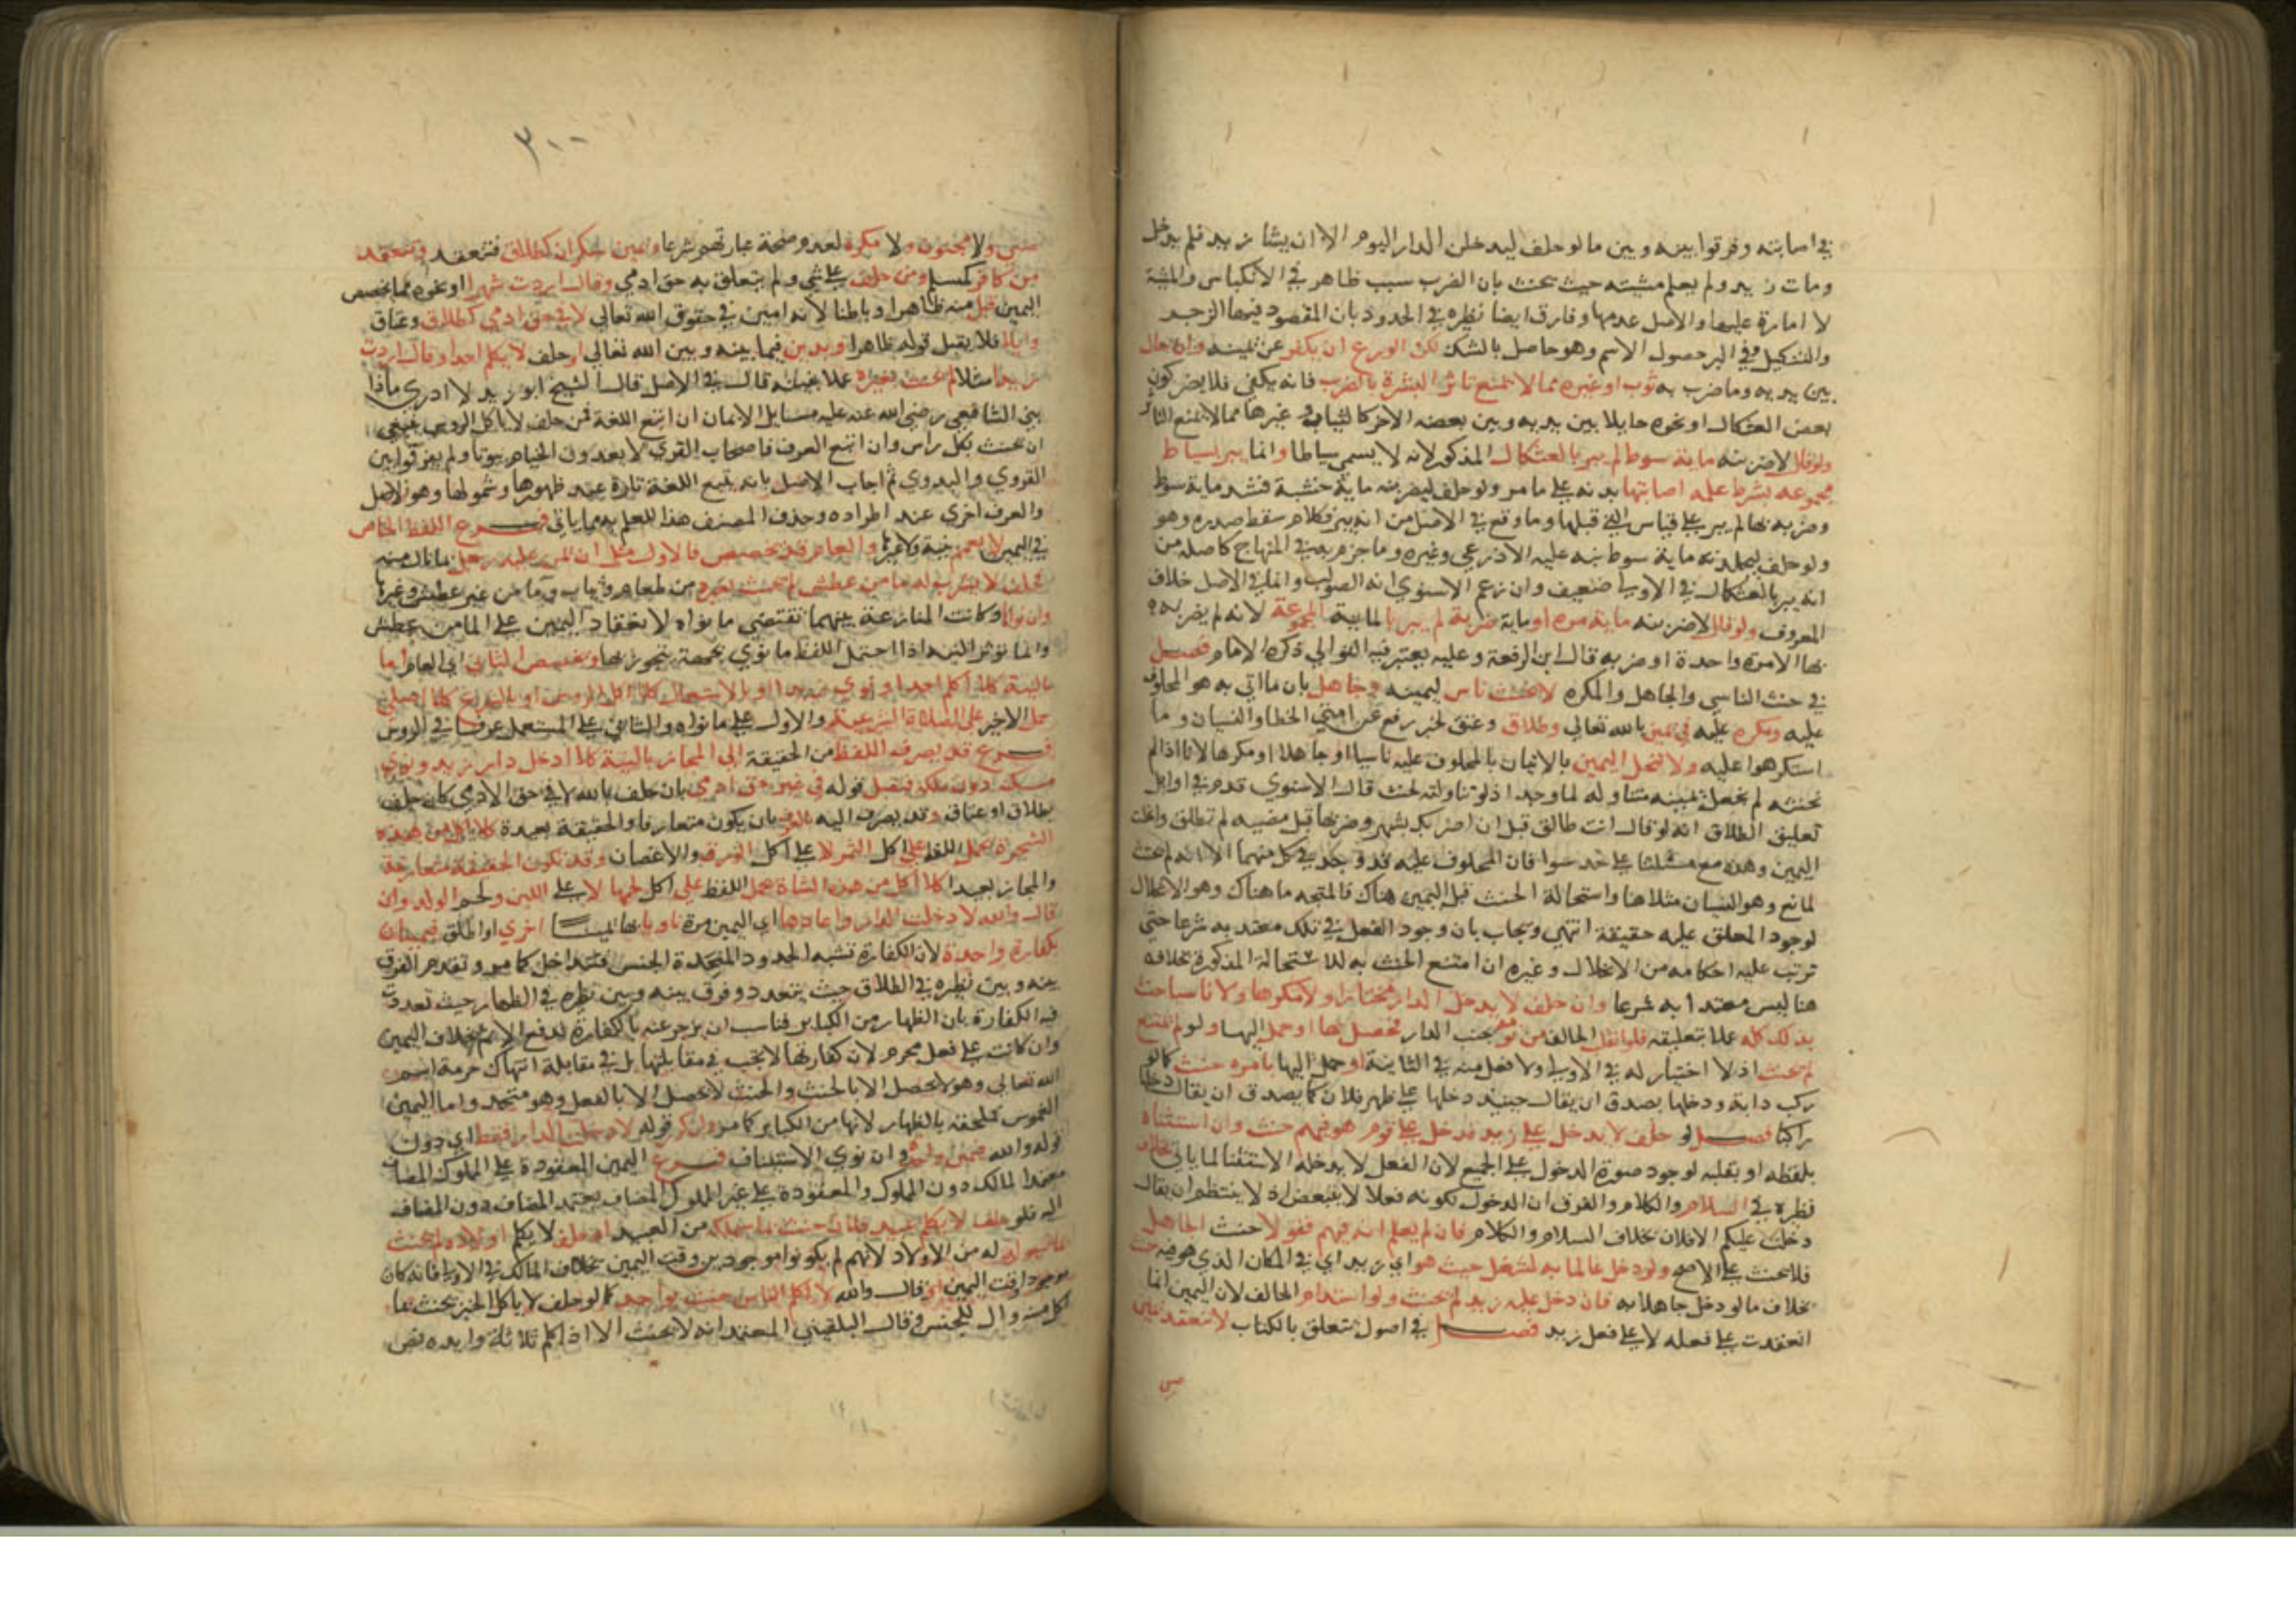 في اصابته وفرقوا بينه وبين ما لو حلف ليدخلن الدار اليوم الا ان يشا زيد فلم يدخل
ومات زيد ولم يعلم مشيته حيث يحنث بان الضرب سبب ظاهر في الانكباس والمشية
لا امارة عليها والاصل عدمها وفارق ايضا نظيره في الحدود بان المقصود فيها الزجر
والتنكيل وفي البر حصول الاسم وهو حاصل بالشك لكن الورع ان يكفر عن يمينه وان حال
بين يديه وما ضرب به ثوب او غيره مما لا يمنع تاثر البشرة بالضرب فانه يكفي فلا يضر كون
بعض العثكال او نحوه حايلا بين يديه وبين بعضه الاخر كالثياب وغيرها مما لا يمنع التاثر
ولو قال لاضربنه ماية سوط لم يبر بالعثكال المذكور لانه لا يسمى سياطا وانما يبر بسياط
مجموعه بشرط علمه اصابتها بدنه على ما مر ولو حلف ليضربنه ماية خشبة فشد ماية سوط
وضربه بها لم يبر على قياس التي قبلها وما وقع في الاصل من انه يبر فكلام سقط صدره وهو
ولو حلف ليجلدنه ماية سوط نبه عليه الاذرعي وغيره وما جزم به في المنهاج كاصله من
انه يبر بالعثكال في الاولى ضعيف وان زعم الاسنوي انه الصواب وانما في الاصل خلاف
المعروف ولو قال لاضربنه ماية مرة او ماية ضربة لم يبر بالماية المجموعة لانه لم يضربه
بها الا مرة واحدة او ضربه قال ابن الرفعة وعليه يعتبر فيه التوالي ذكره الامام فصل
في حنث الناسي والجاهل والمكره لا يحنث ناس ليمينه وجاهل بان ما اتى به هو المحلوف
عليه ومكره عليه في يمين بالله تعالى وطلاق وعتق لخبر رفع عن امتي الخطا والنسيان وما
استكرهوا عليه ولا تنحل اليمين بالاتيان بالمحلوف عليه ناسيا او جاهلا او مكرها لانا اذا لم
نحنثه لم نجعل يمينه متناوله لما وجد اذ لو تناولته لحنث قال الاسنوي قدم في اوايل
تعليق الطلاق انه لو قال انت طالق قبل ان اضربك بشهر وضربها قبل مضيه لم تطلق وانحلت
اليمين وهذه مع مسئلتنا على حد سوا فان المحلوف عليه قد وجد في كل منهما الا انه لم يحنث
لمانع وهو النسيان مثلا هنا واستحالة الحنث قبل اليمين هناك فالمتجه ما هناك وهو الانحلال
لوجود المعلق عليه حقيقة انتهى ويجاب بان وجود الفعل في تلك معتد به شرعا حتى
ترتب عليه احكامه من الانحلال وغيره ان امتنع الحنث به للاستحالة المذكورة بخلافه
هنا ليس معتدا به شرعا وان حلف لا يدخل الدار مختارا ولا مكرها ولا ناسيا حنث
بذلك كله عملا بتعليقه فلو انقلب الحالف من نومه بجنب الدار فحصل بها او حمل اليها ولو لم يمتنع
لم يحنث اذ لا اختيار له في الاولى ولا فعل منه في الثانية او حمل اليها بامره حنث كما لو
ركب دابة ودخلها يصدق ان يقال حينيذ دخلها على ظهر فلان كما يصدق ان يقال دخلها
راكبا فصل لو حلف لا يدخل على زيد فدخل على قوم هو فيهم حنث وان استثناه
بلفظه او بقلبه لوجود صورة الدخول على الجميع لان الفعل لا يدخله الاستثنا لما ياتي بخلاف
نظيره في السلام والكلام والفرق ان الدخول لكونه فعلا لا يتبعض اذ لا ينتظم ان يقال
دخلت عليكم الا فلان بخلاف السلام والكلام فان لم يعلم انه فيهم ففي قولا حنث الجاهل
فلا يحنث على الاصح ولو دخل عالما به لشغل حيث هو اي زيد اي في المكان الذي هو فيه حنث
بخلاف ما لو دخل جاهلا به فان دخل عليه زيد لم يحنث ولو استدام الحالف لان اليمين انما
انعقدت على فعله لا على فعل زيد فصل في اصول تتعلق بالكتاب لا تنعقد يمين
صبي
٣٠٠
صبي ولا مجنون ولا مكره لعدم صحة عبارتهم شرعا ويمين سكران كطلاق فتنعقد وتنعقد
من كافر كمسلم ومن حلف على شي ولم يتعلق به حق ادمي وقال اردت شهرا او نحوه مما يخصص
اليمين قبل منه ظاهرا وباطنا لانه امين في حقوق الله تعالى لا في حق ادمي كطلاق وعتاق
وايلا فلا يقبل قوله ظاهرا ويدين فيما بينه وبين الله تعالى او حلف لا يكلم احدا وقال اردت
زيدا مثلا لم يحنث بغيره عملا بنيته قال في الاصل قال الشيخ ابو زيد لا ادري ماذا
بنى الشافعي رضي الله عنه عليه مسايل الايمان ان اتبع اللغة فمن حلف لا ياكل الروس ينبغي
ان يحنث بكل راس وان اتبع العرف فاصحاب القرى لا يعدون الخيام بيوتا ولم يفرقوا بين
القروي والبدوي ثم اجاب الاصل بانه يتبع اللغة تارة عند ظهورها وشمولها وهو الاصل
والعرف اخرى عند اطراده وحذف المصنف هذا للعلم به مما ياتي فرع اللفظ الخاص
في اليمين لا يعمم بنية ولا غيرها والعام قد يخصص فالاول مثل ان يمن عليه رجل بما نال منه
فحلف لا يشرب له ما من عطش لم يحنث بغيره من طعام وثياب وما من غير عطش وغيرها
وان نواه وكانت المنازعة بينهما تقتضي ما نواه لانعقاد اليمين على الما من عطش
وانما تؤثر النية اذا احتمل اللفظ ما نوى بجهة يتجوز بها وتخصيص الثاني اي العام اما
بالنية كلا اكلم احدا ونوى زيدا او بالاستعمال كلا اكل الروس او بالشرع كلا اصلي
حمل الاخير على الصلاة الشرعية والاول على ما نواه والثاني على المستعمل عرفا في الروس
فرع قد يصرف اللفظ من الحقيقة الى المجاز بالنية كلا ادخل دار زيد ونوى
مسكنه دون ملكه فيقبل قوله في غير حق ادمي بان حلف بالله لا في حق الادمي كان حلف
بطلاق او عتاق وقد يصرف اليه بالعرف بان يكون متعارفا والحقيقة بعيدة كلا اكل من هذه
الشجرة يحمل اللفظ على اكل الثمر لا على اكل الورق والاغصان وقد تكون الحقيقة متعارفة
والمجاز بعيدا كلا اكل من هذه الشاة يحمل اللفظ على اكل لحمها لا على اللبن ولحم الولد وان
قال والله لا دخلت الدار واعادها اي اليمين مرة ناويا بها يمينا اخرى او اطلق فيمينان
بكفارة واحدة لان الكفارة تشبه الحدود المتحدة الجنس فتتداخل كما مر وتقدم الفرق
بينه وبين نظيره في الطلاق حيث يتعدد وفرق بينه وبين نظيره في الظهار حيث تعددت
فيه الكفارة بان الظهار من الكباير فناسب ان يزجر عنه بالكفارة لدفع الاثم بخلاف اليمين
وان كانت على فعل محرم لان كفارتها لا تجب في مقابلتها بل في مقابلة انتهاك حرمة اسم
الله تعالى وهو لا يحصل الا بالحنث والحنث لا يحصل الا بالفعل وهو متحد واما اليمين
الغموس فملحقة بالظهار لانها من الكباير كما مر ولو كرر قوله لا دخلت الدار فقط اي دون
قوله والله فيمين واحدة وان نوى الاستيناف فرع اليمين المعقودة على المملوك المضاف
يعتمد المالك دون المملوك والمعقودة على غير المملوك المضاف يعتمد المضاف دون المضاف
اليه فلو حلف لا يكلم عبيد فلان حنث بما سيملكه من العبيد او حلف لا يكلم اولاده لم يحنث
بالمولود له من الاولاد لانهم لم يكونوا موجودين وقت اليمين بخلاف المالك في الاولى فانه كان
موجودا وقت اليمين او قال والله لا اكلم الناس حنث بواحد كما لو حلف لا ياكل الخبز يحنث بما
اكل منه وال للجنس وقال البلقيني المعتمد انه لا يحنث الا اذا كلم ثلاثة وايده بنص